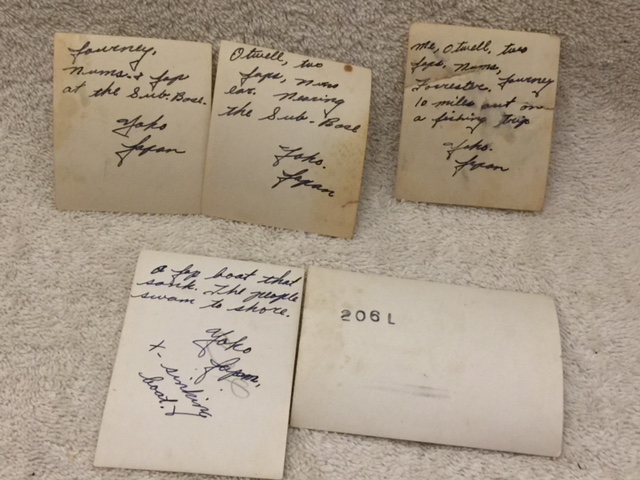 Journey,
Nums. & Jap
at the Sub-Base.
Yoko
Japan
Otwell, two
Japs, Nums
ear. Nearing
the Sub-Base
Yoko.
Japan
me, Otwell, two
Japs, Nums,
Forrester, Journey
10 miles out on
a fishing trip
Yoko.
Japan
a Jap boat that
sank. The people
swam to shore.
Yoko
Japan,
x- sinking
boat.
206L